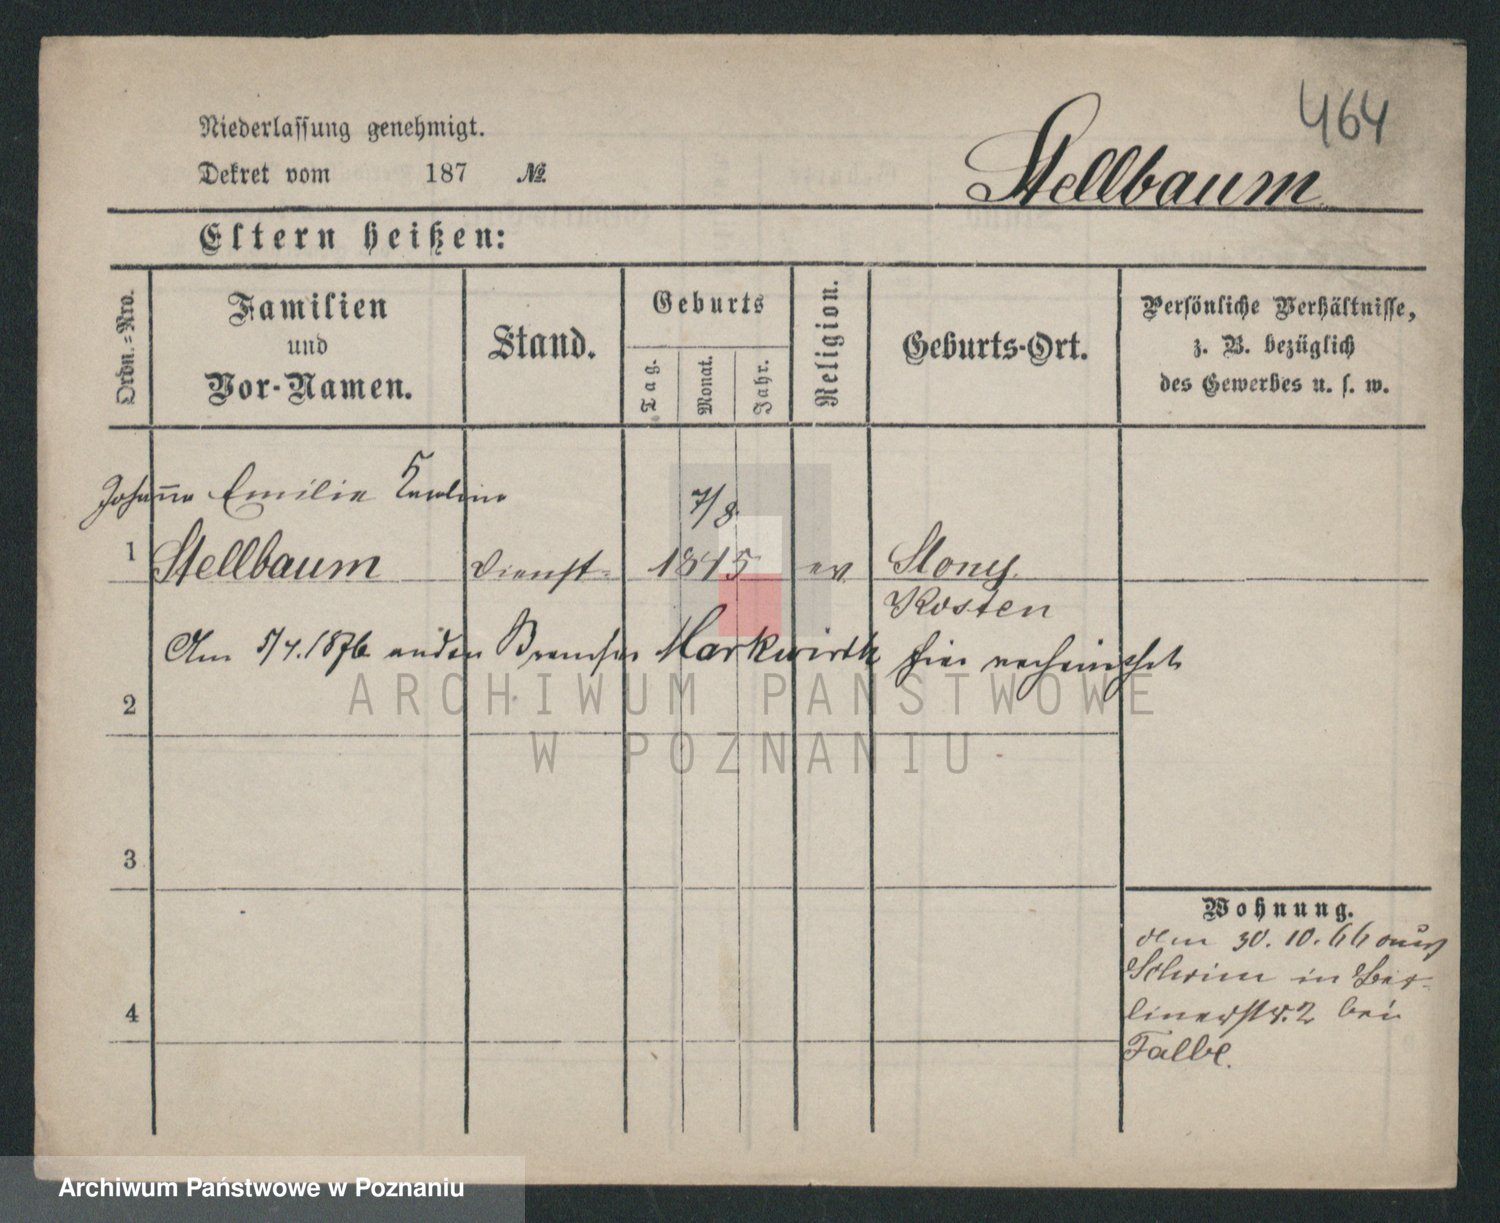 464
Niederlassung genehmigt.
Dekret vom 187 №
Stellbaum
Eltern heißen:
Ordn.-Nro.
Familien
und
Vor-Namen.
Stand.
Geburts
Tag.
Monat.
Jahr.
Religion.
Geburts-Ort.
Persönliche Verhältnisse,
z. B. bezüglich
des Gewerbes u. s. w.
Emilie
7/8.
1 Stellbaum Dienst- 1845 ev
Kosten
Am 5/4. 1876 an den Markwirth hier verheirathet
2
3
4
Wohnung.
den 30. 10. 66
Schrim in Ber-
linerstr. 2 bei
Falbe.
ARCHIWUM PAŃSTWOWE
W POZNANIU
Archiwum Państwowe w Poznaniu